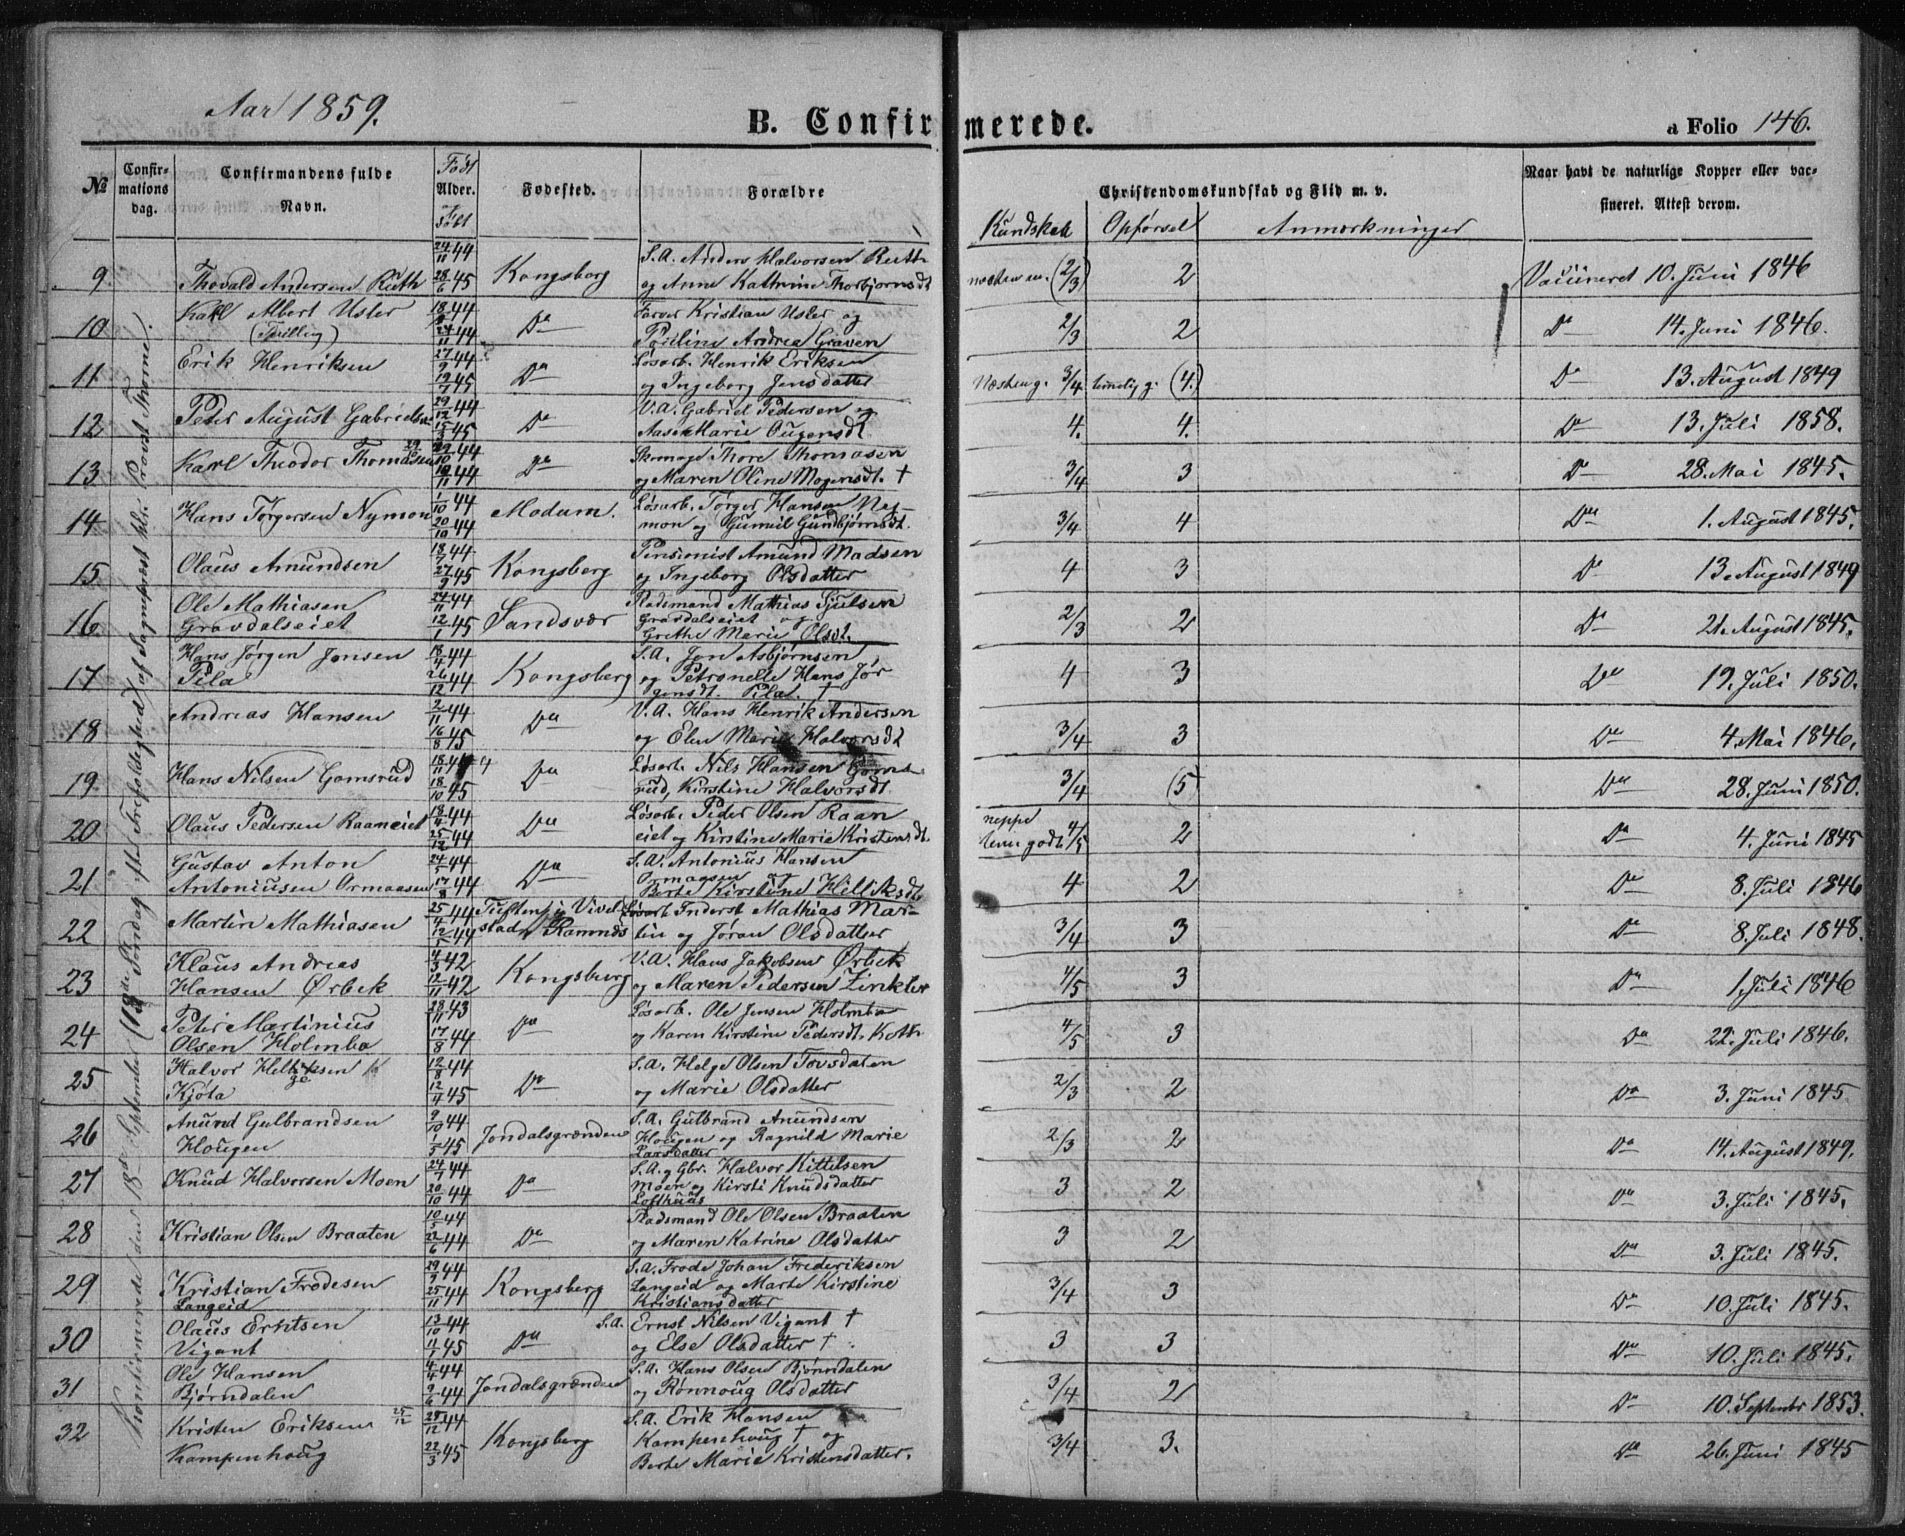 Aar 1859.
B. Confirmerede.
a Folio 146.
№
Confirmations dag.
Confirmandens fulde Navn.
Født
Alder.
Født
Fødested.
Forældre
Christendomskundskab og Flid m. v.
Kundskab Opførsel Anmærkninger
Naar havt de naturlige Kopper eller vacsineret. Attest derom.
Konfirmerede den 18de September (13de Søndag efter Trefoldighed) af Sognepræst Hr. Provst Thorne.
9 Thovald Andersen Ruth 24/11 44 28/6 45 Kongsberg S.A. Anders Halvorsen Ruth
og Anne Kathrine Thorbjørnsdt næsten m. (2/3) 2 Vacineret 10. Juni 1846
10 Karl Albert Usler 18/ 44
(Tvilling) 24/11 44 Da Farver Kristian Usler og
Pouline Andrea Graven 2/3 2 Da 14. Juni 1846.
11 Erik Henriksen 27/9 44 19/7 45 Da Løsarb. Henrik Eriksen
og Ingeborg Jensdatter Næsten g. 3/4 temelig g. (4.) Da 13. August 1849
12 Peter August Gabrielsen 29/12 44 15/3 45 Da V.A. Gabriel Pedersen og
Aase Marie Ougensdt 4. 4. Da 13. Juli 1858.
13 Karl Theodor Thomasen 29/10 44 10/11 44 Da Skomag. Thore Thomasen
og Maren Oline Mogensdt. † 3/4 3 Da 28. Mai 1845.
14 Hans Tørgersen Nymon 1/10 44 20/10 44 Modum. Løsarb. Tørger Hansen Nymon og Gunnil Gundbjørnsdt. 3/4 4 Da 1. August 1845.
15 Olaus Amundsen 18/7 44 27/9 45 Kongsberg Pensionist Amund Madsen
og Ingeborg Olsdatter 4 3 Da 13. August 1849
16 Ole Mathiasen
Gravdalseiet 24/11 44 12/1 45 Sandsvær Pladsmand Mathias Gjulsen
Gravdalseiet og
Grethe Marie Olsdt. 2/3 2 Da 21. August 1845.
17 Hans Jørgen Jonsen
Pila 18/4 44 26/12 44 Kongsberg S.A. Jon Asbjørnsen
og Petronelle Hans Jørgensdt. Pila. † 4 3 Da 19. Juli 1850.
18 Andreas Hansen 2/11 44 16/8 45 Da V.A. Hans Henrik Andersen
og Elen Marie Halvorsdt 3/4 3 Da 4. Mai 1846.
19 Hans Nilsen Gomsrud 18/11 44 18/10 45 Da Løsarb. Nils Hansen Gomsrud, Kirstine Halvorsdt. 3/4 (5 Da 28. Juni 1850.
20 Olaus Pedersen Raaneiet 18/4 44 25/12 44 Da Løsarb. Peder Olsen Raaneiet og Kirstine Marie Kristensdt. neppe
tem. godt 4/5 2 Da 4. Juni 1845
21 Gustav Anton
Antoniusen Ormaasen 24/5 44 17/8 44 Da S.A. Antonius Hansen
Ormaasen og
Berte Kirstine Helliksdt. 4 2 Da 8. Juli 1846
22 Martin Mathiasen 25/4 44 12/5 44 Løsarb. Inderst Mathias Martin og Jøran Olsdatter 3/4 3 Da 8. Juli 1848.
23 Klaus Andreas
Hansen Ørbek 4/3 42 12/11 42 Kongsberg V.A. Hans Jakobsen Ørbek
og Maren Pedersen Zinkler 4/5 3 Da 1. Juli 1846
24 Peter Martinius
Olsen Holmbo 28/11 43 17/8 44 Da Løsarb. Ole Jensen Holmbo
og Karen Kirstine Pedersdt. Koth 4/5 3 Da 22. Juli 1846.
25 Halvor Helgesen
Kjota 12/8 44 12/4 45 Da S.A. Helge Olsen Tovsdalen
og Marie Olsdatter 2/3 2 Da 3. Juni 1845
26 Anund Gulbrandsen
Hougen 9/10 44 1/5 45 Jondalsgrænden S.A. Gulbrand Anundsen
Hougen og Ragnild Marie
Larsdatter 2/3 2 Da 14. August 1849.
27 Knud Halvorsen Moen 24/7 44 20/10 44 Da S.A. og Gbr. Halvor Kittelsen
Moen og Kirsti Knudsdatter
Lofthuus 3 2 Da 3. Juli 1845.
28 Kristian Olsen Braaten 10/5 44 22/6 44 Da Pladsmand Ole Olsen Braaten
og Maren Katrine Olsdatter 3 2 Da 3. Juli 1845.
29 Kristian Frodesen
Langeid 29/9 44 25/11 44 Kongsberg S.A. Frode Johan Frederiksen
Langeid og Marte Kirstine
Kristiansdatter 3/4 3 Da 10. Juli 1845.
30 Olaus Erntsen
Vigant 13/10 44 11/1 45 Da S.A. Ernst Nilsen Vigant †
og Else Olsdatter † 3 3 Da 10. Juli 1845.
31 Ole Hansen
Bjørndalen 4/4 44 9/6 44 Jondalsgrænden S.A. Hans Olsen Bjørndalen
og Rønnoug Olsdatter 3/4 2 Da 10. September 1853.
32 Kristen Eriksen
Kampenhoug 25/12 44 22/3 45 Kongsberg S.A. Erik Hansen
Kampenhoug † og
Berte Marie Kristensdatter. 3/4 3. Da 26. Juni 1845